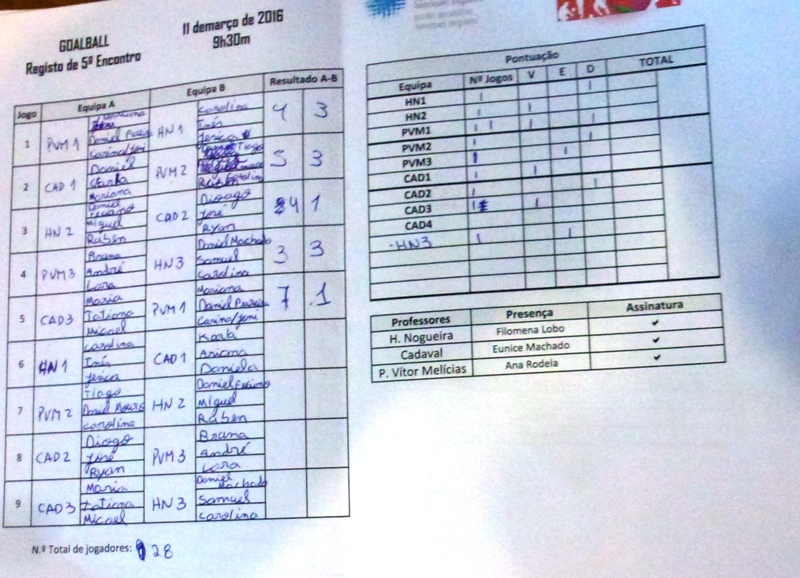 GOALBALL
Registo de 5º Encontro
11 demarço de 2016
9h30m
Jogo Equipa A Equipa B Resultado A-B
1 PVM 1 Daniel Carina/Joni HN 1 Carolina Inês Jessica 4 3
2 CAD 1 Daniel Mariana PVM 2 Tiago Carolina 5 3
3 HN 2 Daniel Miguel Ruben CAD 2 Diogo José Ryan 4 1
4 PVM 3 Bruna André Lara HN 3 Daniel Machado Samuel Carolina 3 3
5 CAD3 Maria Tatiana Micael PVM 1 Mariana Daniel Carina/Joni 7 1
6 HN 1 Carolina Inês Jessica CAD 1 Ariana Daniela
7 PVM 2 Tiago Daniel Carolina HN 2 Daniel Miguel Ruben
8 CAD 2 Diogo José Ryan PVM 3 Bruna André Lara
9 CAD 3 Maria Tatiana Micael HN 3 Daniel Machado Samuel Carolina
N.º Total de jogadores: 28
Pontuação
Equipa Nº Jogos V E D TOTAL
HN1 I I
HN2 I I
PVM1 I I I I
PVM2 I I
PVM3 I I
CAD1 I I
CAD2 I I
CAD3 I I
CAD4
HN3 I I
Professores Presença Assinatura
H. Nogueira Filomena Lobo ✓
Cadaval Eunice Machado ✓
P. Vítor Melícias Ana Rodela ✓